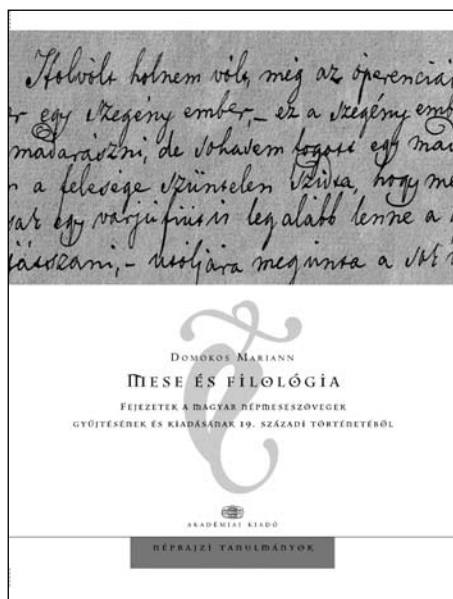 Holvólt holnem vólt, még az óperenciá
er egy szegény ember,- ez a szegény emb
madarászni, de sohasem fogott egy ma
n a felesége szüntelen szidta, hogy me
sak egy varjúfiút is legalább lenne a
játszani,- utóljára megunta a sok
DOMOKOS MARIANN
MESE ÉS FILOLÓGIA
FEJEZETEK A MAGYAR NÉPMESESZÖVEGEK
GYŰJTÉSÉNEK ÉS KIADÁSÁNAK 19. SZÁZADI TÖRTÉNETÉBŐL
AKADÉMIAI KIADÓ
NÉPRAJZI TANULMÁNYOK